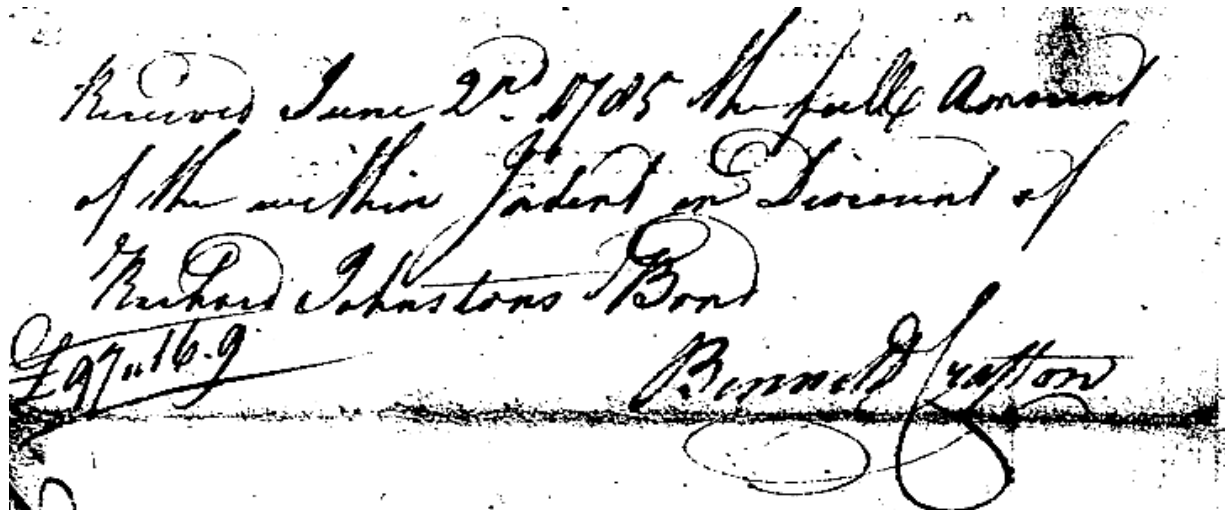 Received June 2nd. 1785 the full Amount
of the within Indent in Discount of
Richard Johnstons Bond
£97"16.9
Bennett Crafton